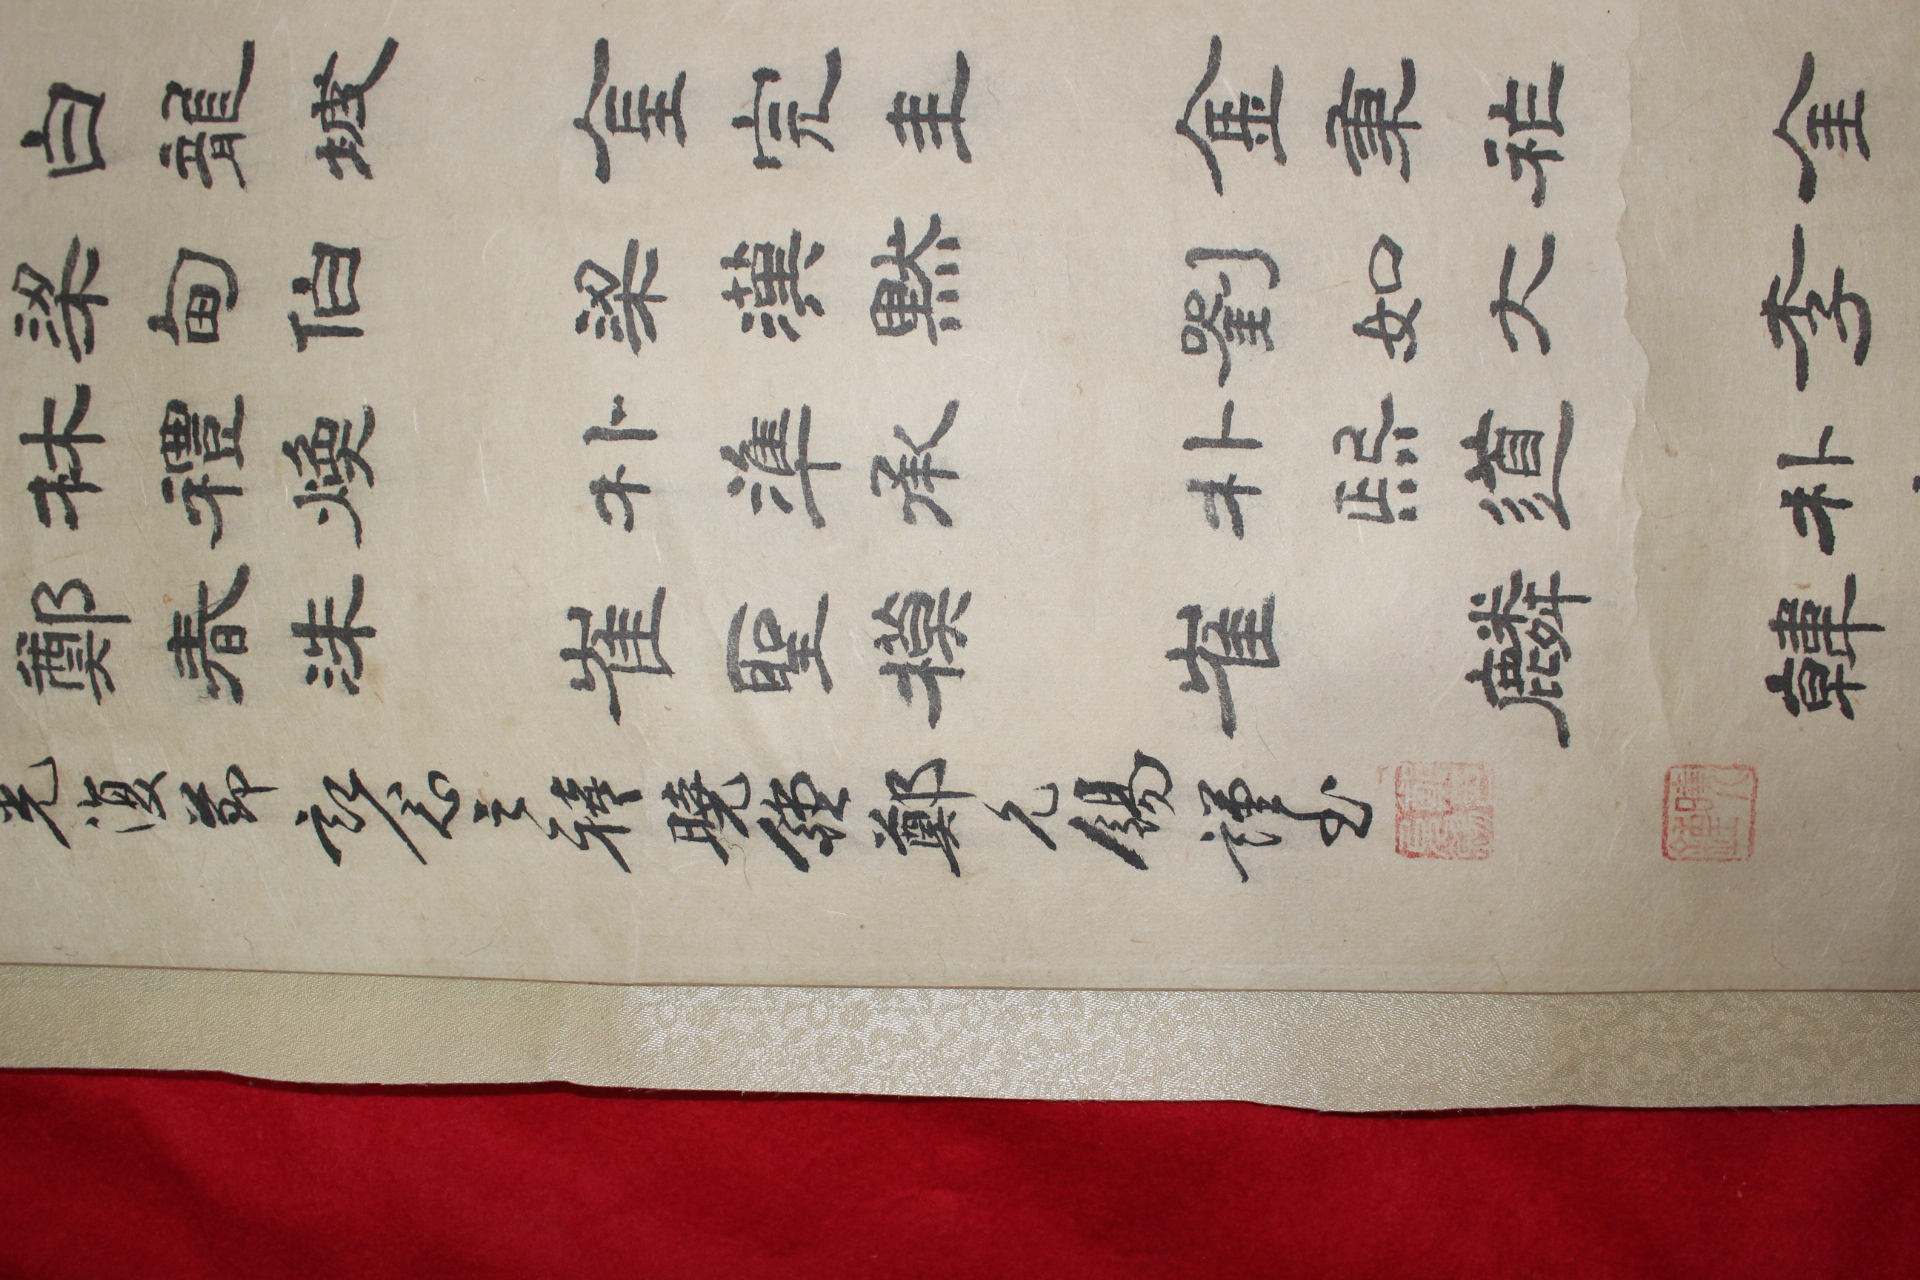 白龍城 金完圭 金秉祚 金
梁甸伯 梁漢默 劉如大 李
林禮煥 朴準承 朴熙道 朴
鄭春洙 崔聖模 崔麟 韓
光復節記念之禧曉鐘鄭允錫謹書
曉鍾